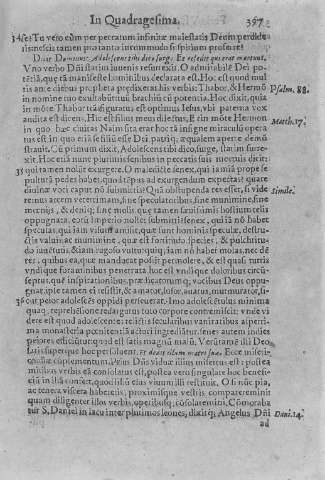 In Quadragesima. 397
34 ses Tu vero cum per peccatum infinitæ maiestatis Deum perdide
ris nescis tamen pro tanto incommodo suspirium profunde?
Dixit Dominus: Adolescens tibi dico surge. Et resedit qui erat mortuus.
Vno verbo Dñi statim iuvenis resurrexit. O admirabilē Dei po-
tētiā, quę tā manifeste hominibus declarata est. Hoc est quod mul
tis ante diebus propheta prędixerat his verbis: Thabor, & Hermō
in nomine tuo exultabunt tuū brachiū cū potentia. Hoc dixit, quia
in mōte Thabor trāsfiguratus est optimus Iesus, vbi paterna vox
audita est dicens. Hic est filius meus dilectus. Et in mōte Hermon
in quo hæc ciuitas Naim sita erat hoc tā insigne miraculū opera
tus est in quo etiā se filiū esse Dei patris, eiq; æqualem aperte demō
stravit. Cū primum dixit, Adolescens tibi dico, surge, statim surre-
xit. Hoc etiā nunc plurimis senibus in peccatis suis mortuis dicit:
35 qui tamen nolūt exurgere. O maledicte senex, qui iamiā prope se
pulturā pedes habes, quo tēpus ad exurgendum expectas? quare
divinæ voci caput nō submittis? Quā obstupenda res esset, si vide
remus arcem vetustissimam, sine speculatoribus, sine munimine, sine
mœnijs, & deniq; sine mœlis, quę tamen sæuissimis hostium telis
oppugnata, corū imperio nollet submitti? senex, qui iā nō habet
speculas, qui iam visum amisit, quæ sunt hominis speculæ, destru-
ctis valuis, ac munimine, quæ est fortitudo, species, & pulchritu-
do iuuētutis, Etiam rugoso vultu quiq; iam nō habet molas, nec dē
tes, quibus ea, quæ manducat possit permolere, & est quasi turris
vndique foraminibus penetrata, hoc est vndique doloribus circū-
septus, quē inspirationibus, prædicatorumq; vocibus Deus oppu-
gnat, ipse tamen ei resistit, & amator, lusor, auarus, murmurator, si-
36 cut peior adolescēs oppidi perseverat. Imo adolescētulus minima
quaq; reprehēsione redargutus toto corpore contremiscit; vnde vi
dere est quod adolescentes relictis secularibus vanitatibus asperri-
ma monasteria pœnitentiā acturi ingrediātur. senes autem indies
peiores efficiūtur, quod est satis magnā malū. Verūtamē illi Deo
satis superque hoc persoluent. Et dedit illum matri suæ. Ecce miseri-
cordiæ cumentum. Prius Dñs viduæ illius misertus est: postea
multis verbis eā consolatus est, postea vero singulare hoc benefi-
ciū in illā contert, quod filiū eius vivum illi restituit. O si nūc pia,
ac tenera viscera haberetis, proximisque vestris compareremini
quam diligenter illos verbis, operibusq; cōsolaremini. Cōmoraba
tur S. Daniel in lacu inter plurimos leones, dixitq; Angelus Dñi
ad
Psalm. 88.
Matth. 17.
Simile.
Dani. 14.